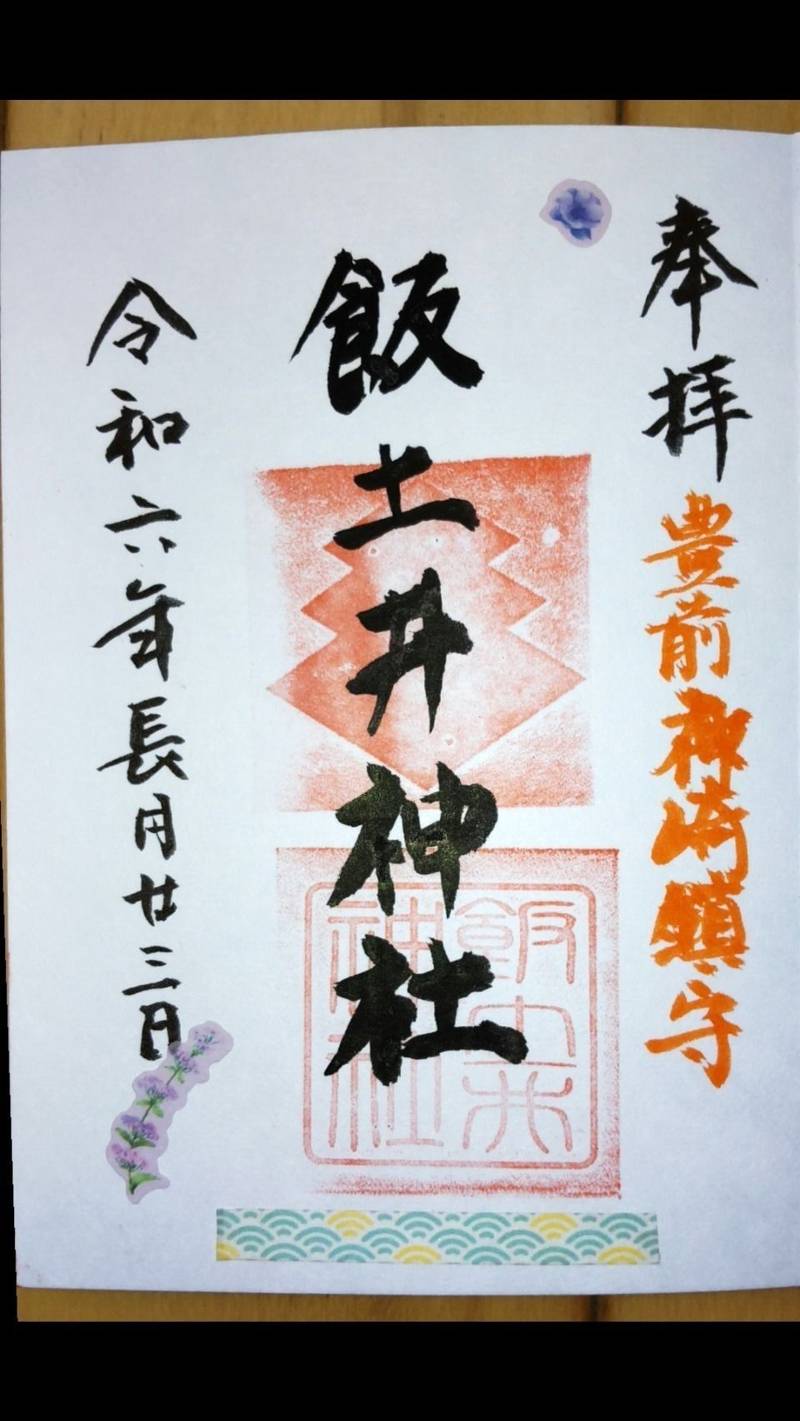 奉拝
豊前神崎鎮守
飯土井神社
令和六年長月廿三日
飯土井
神社